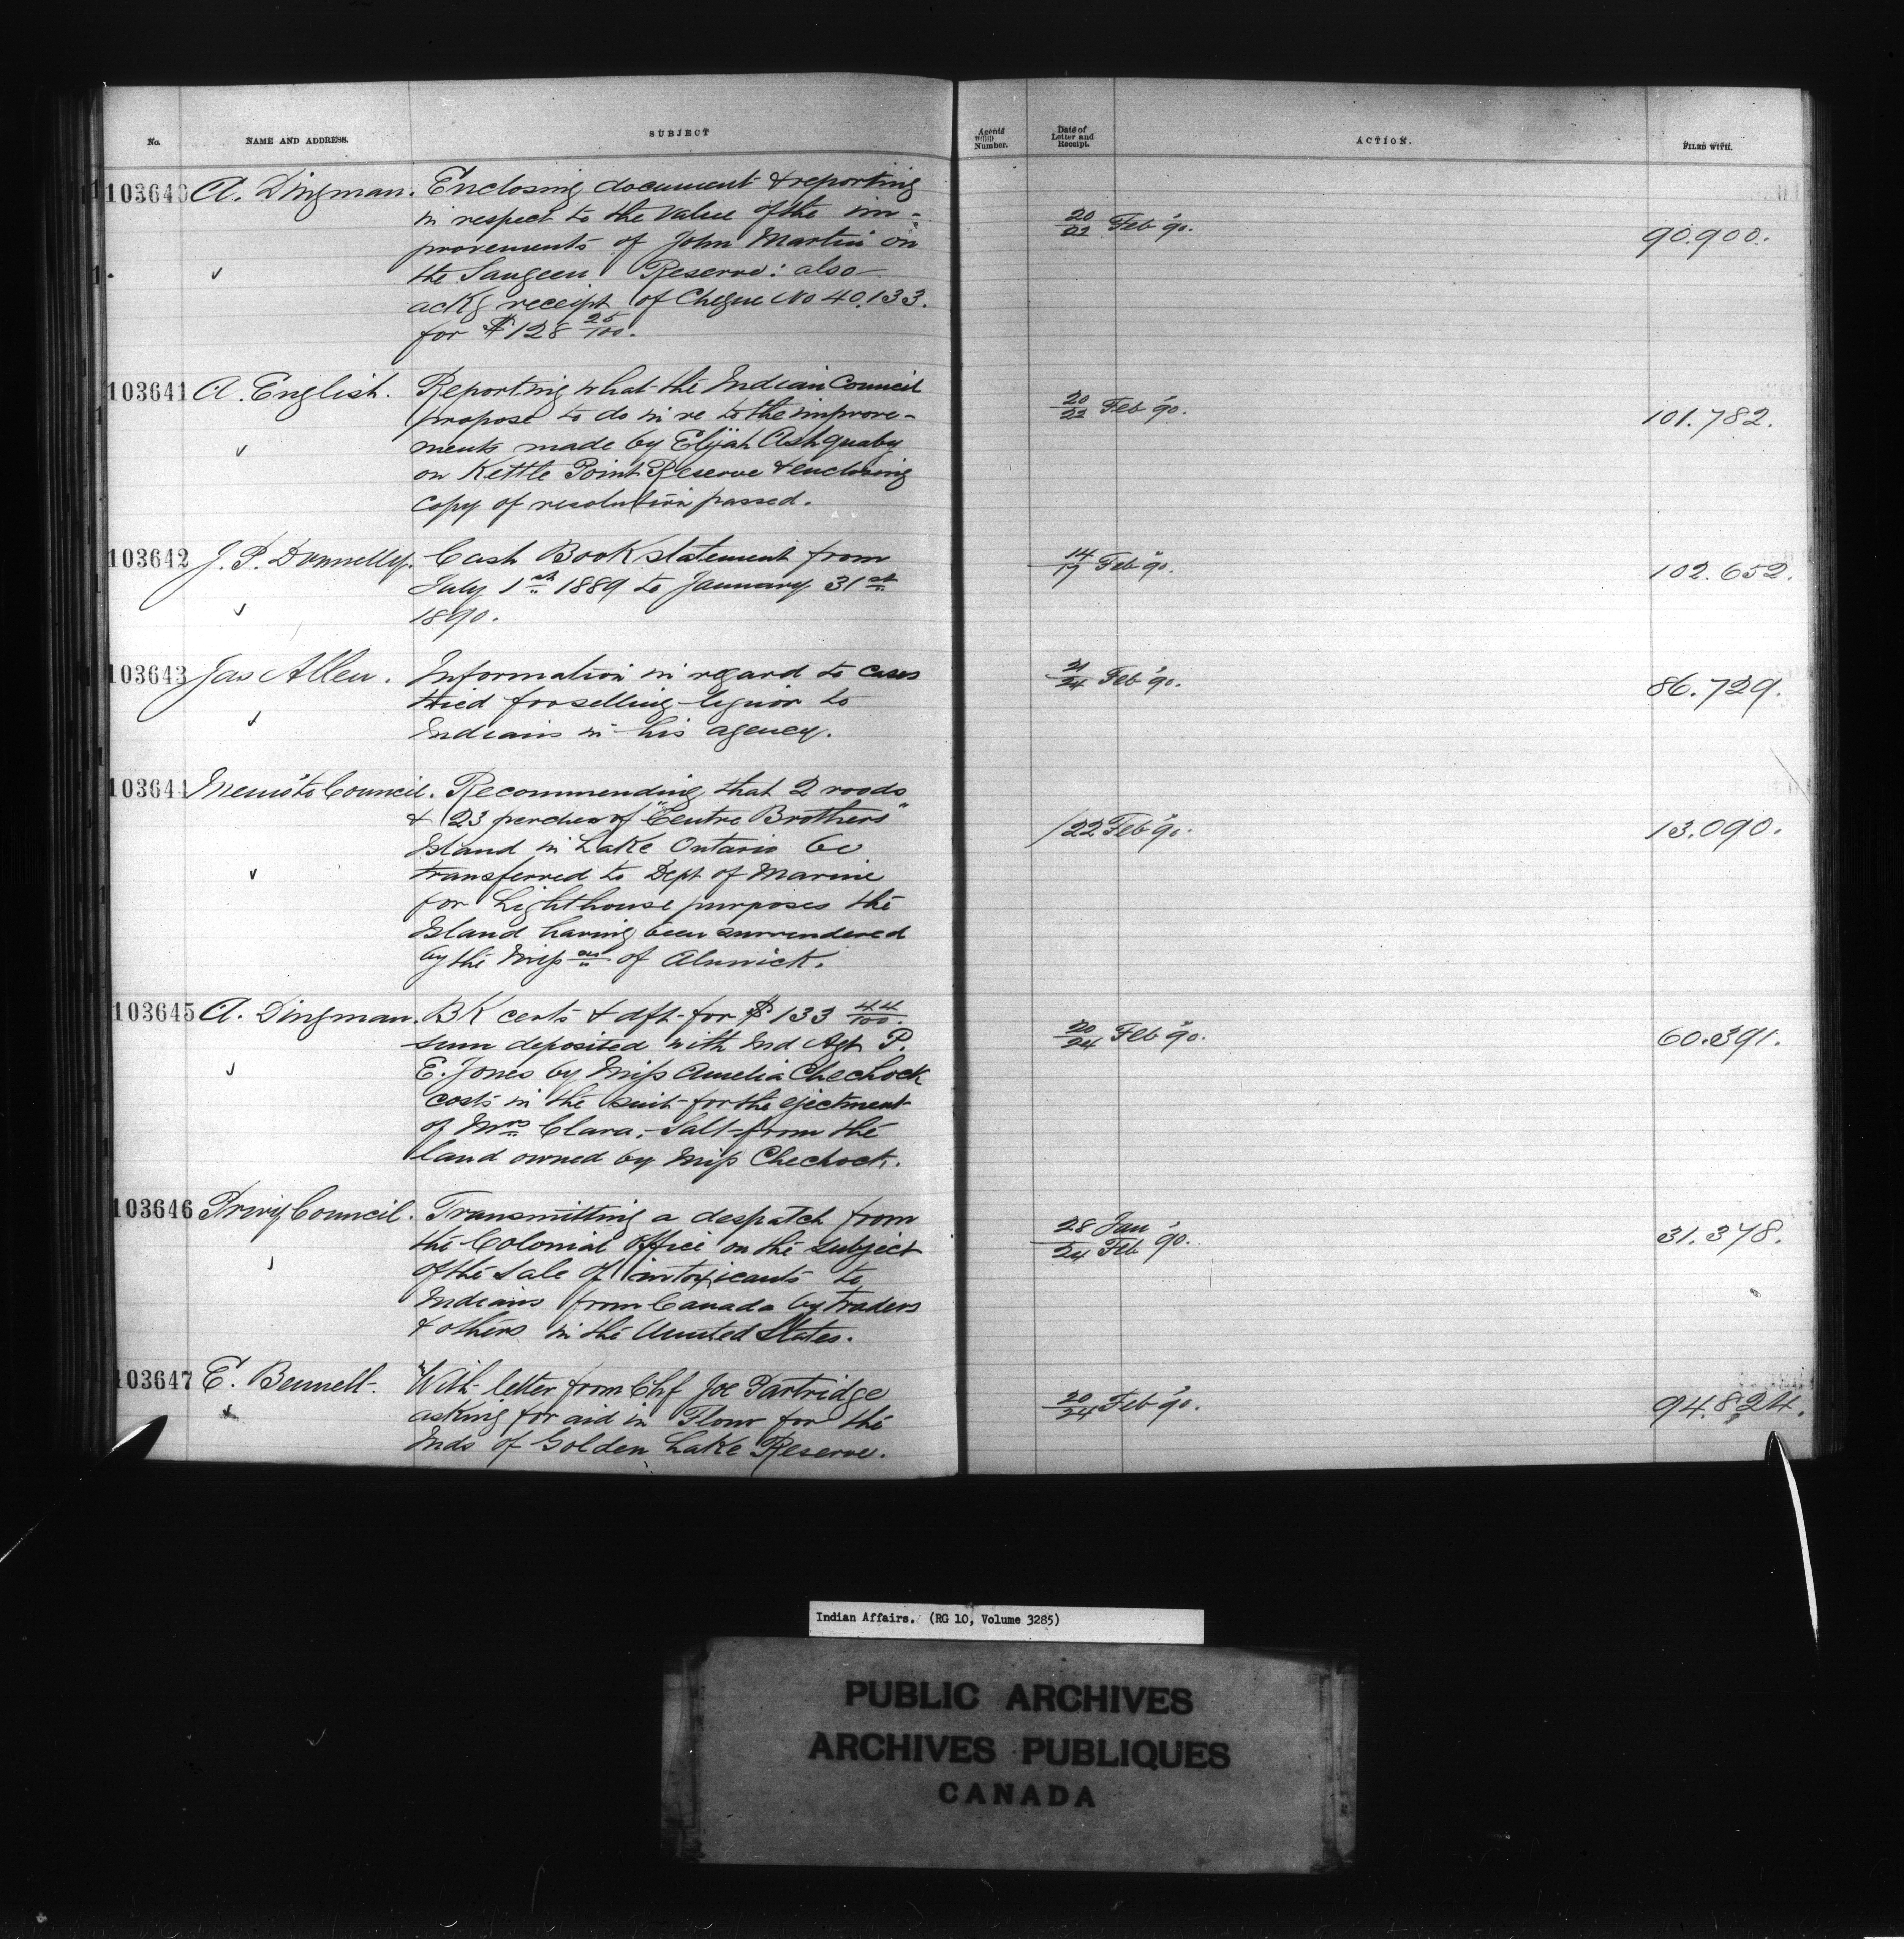 No. NAME AND ADDRESS. SUBJECT Agents Number. Date of Letter and Receipt. ACTION. FILED WITH.
103640 A. Dingman. Enclosing document & reporting
in respect to the value of the im-
provements of John Martin on
the Saugeen Reserve: also
ackg receipt of Cheque No 40.133.
for $128 25/100.
20/22 Feb '90. 90.900.
103641 A. English. Reporting what the Indian Council
propose to do in re to the improve-
ments made by Elijah Ashquaby
on Kettle Point Reserve & enclosing
copy of resolution passed.
20/22 Feb '90. 101.782.
103642 J. P. Donnelly. Cash Book statement from
July 1st 1889 to January 31st
1890.
14/17 Feb "90. 102.652.
103643 Jas Allen. Information in regard to cases
tried for selling liquor to
Indians in his agency.
21/24 Feb '90. 86.729.
103644 Memo to Council. Recommending that 2 roods
& 23 perches of "Centre Brothers"
Island in Lake Ontario be
transferred to Dept of Marine
for Lighthouse purposes the
Island having been surrendered
by the Miss as of Alnwick.
/22 Feb "90. 13.090.
103645 A. Dingman. BK certs & dft for $133 44/100.
sum deposited with Ind Agt P.
E. Jones by Miss Amelia Chechock
costs in the suit for the ejectment
of Mrs Clara. Salt from the
land owned by Miss Chechock.
20/24 Feb "90. 60.391.
103646 Privy Council. Transmitting a despatch from
the Colonial Office on the subject
of the sale of intoxicants to
Indians from Canada by traders
& others in the United States.
28 Jan / 24 Feb '90. 31.378.
103647 E. Bennett. With letter from Chf Joe Partridge
asking for aid in Flour for the
Inds of Golden Lake Reserve.
20/24 Feb '90. 94.824.
Indian Affairs. (RG 10, Volume 3285)
PUBLIC ARCHIVES
ARCHIVES PUBLIQUES
CANADA